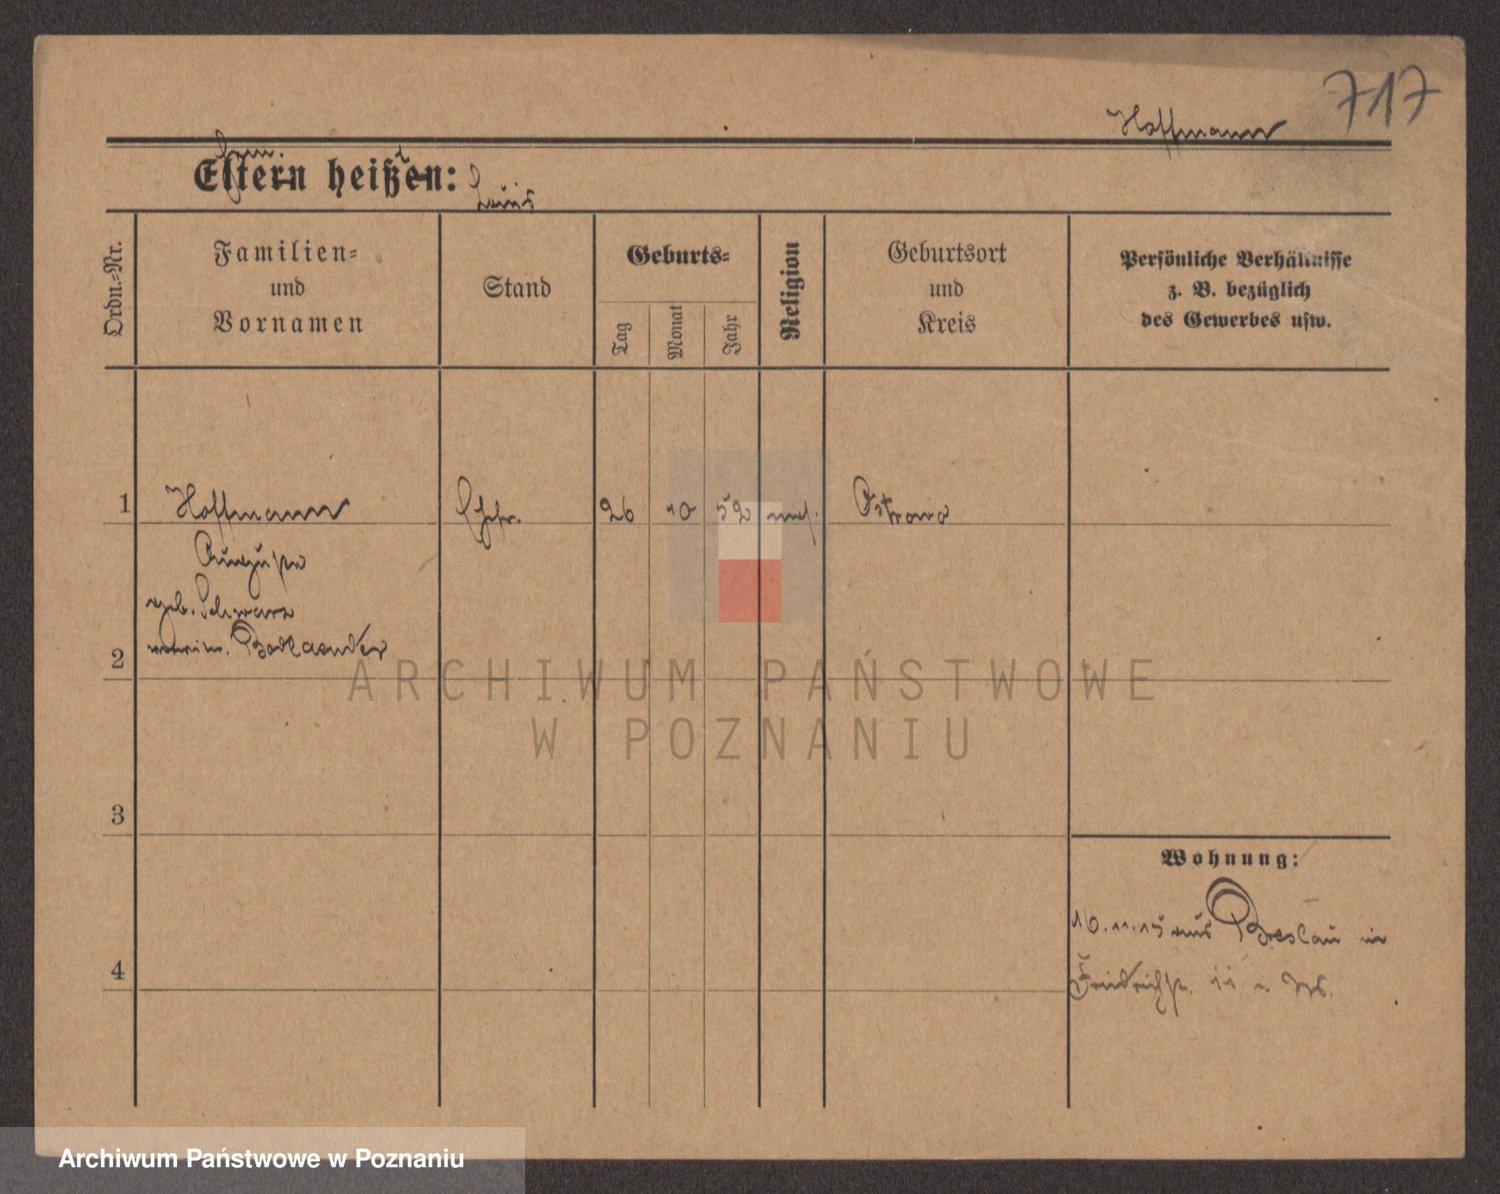 717
Hoffmann
Eltern heißen:
Louis
Ordn.-Nr.
Familien-
und
Vornamen
Stand
Geburts-
Tag
Monat
Jahr
Religion
Geburtsort
und
Kreis
Persönliche Verhältnisse
z. B. bezüglich
des Gewerbes usw.
1 Hoffmann Ehefr. 26 10 52 mos. Ostrowo
Auguste
geb. Schwarz
2 Bodlaender
ARCHIWUM PAŃSTWOWE
W POZNANIU
3
Wohnung:
16.11.15 aus Breslau in
4 Friedrichstr. 11
Archiwum Państwowe w Poznaniu